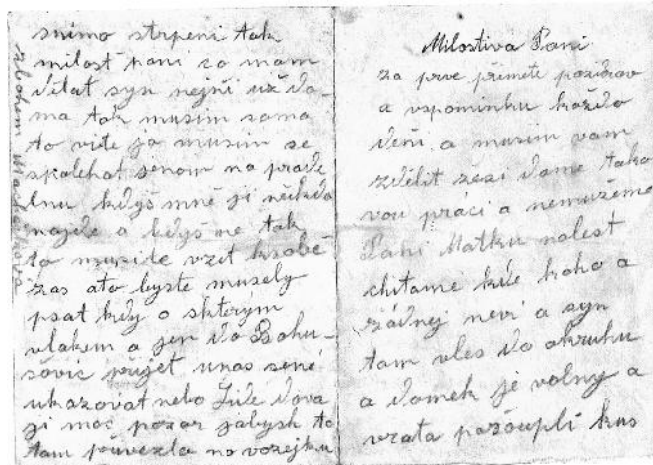 snimo strpeni tak
milost pani co mam
dělat syn nejni už do-
ma tak musim sama
to vite ja musim se
spolehat jenom na prade
lnu kdyš mně ji někdo
najde a kdyš ne tak
to museide vzit ksobě
zas ato byste musely
psat kdy a skterym
vlakem a jen do Bohu-
šovic přijet unas sené
ukazovat nebo Lide dova
ji moc pozor jabych to
tam převezla na vozejku
zbohem
Milostiva Pani
za prve přimete pozdrav
a vspominku každo
deňi a musim vam
zdělit žezi dame tako
vou práci a nemužeme
Pani Matku nalest
chitame kde koho a
žádnej nevi a syn
tam vles do okruhu
a domek je volny a
vrata pařouplí kus